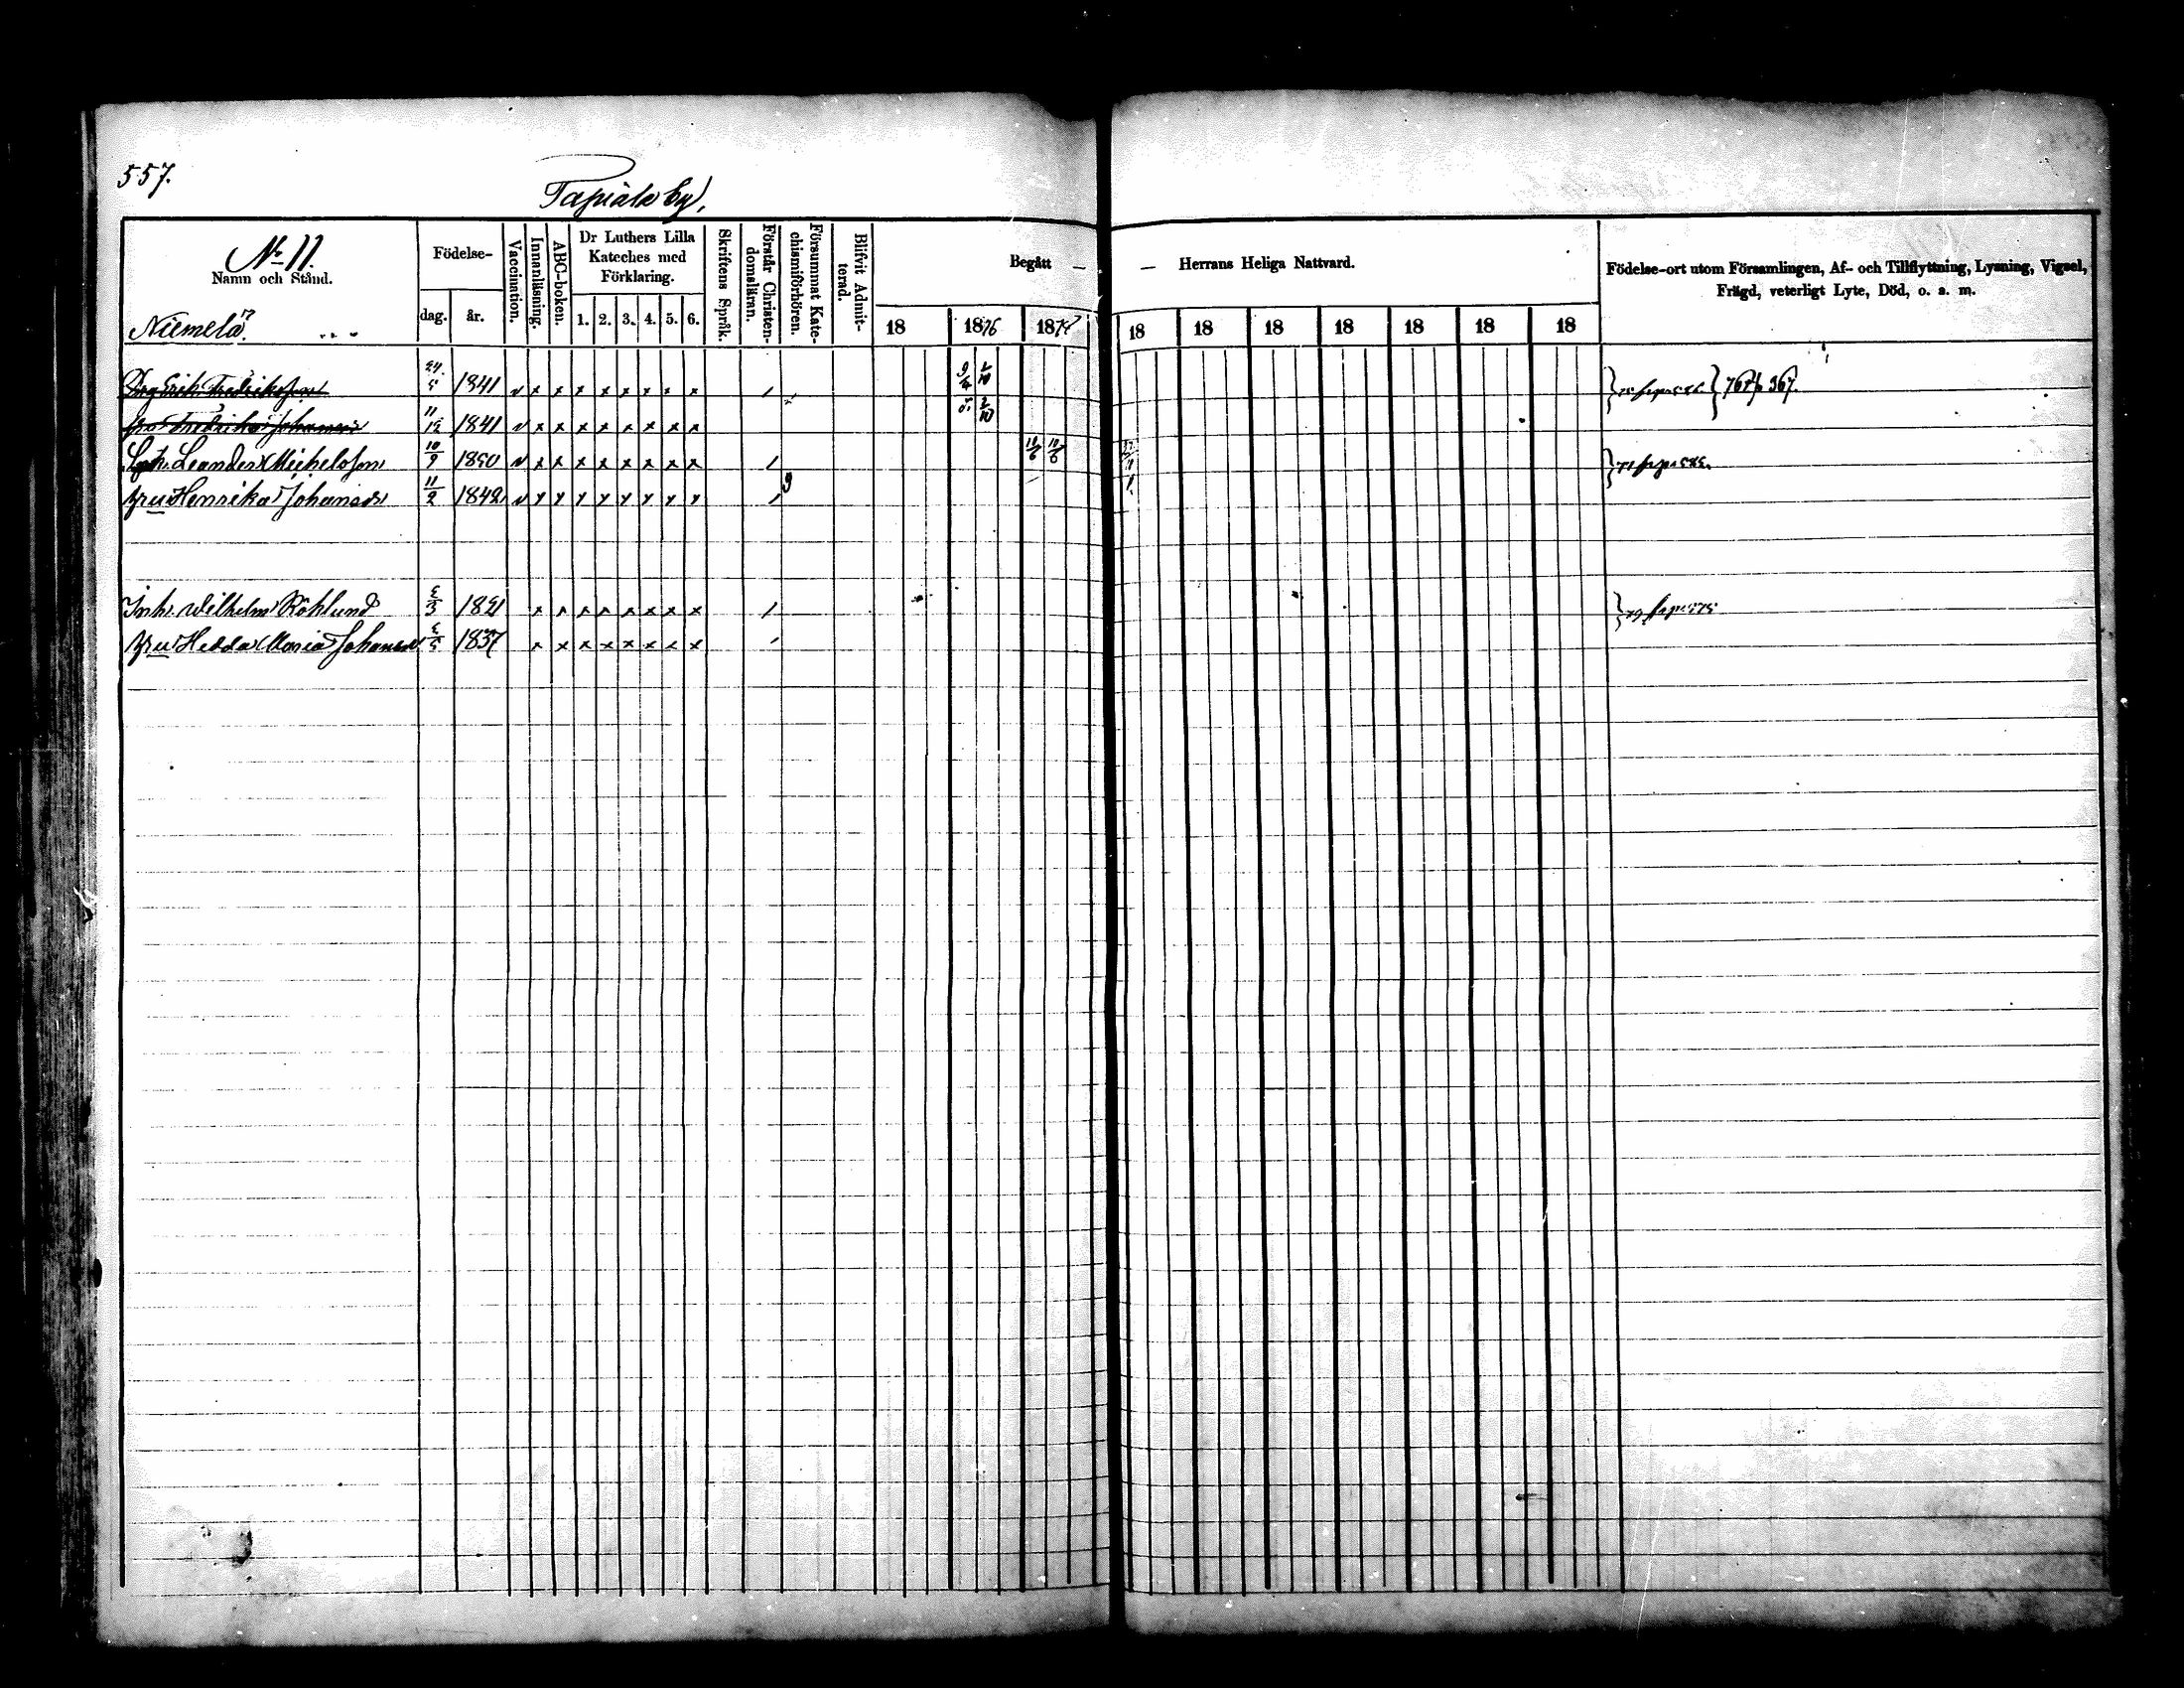 557.
Tapiala by.
No 11.
Namn och Stånd.
Födelse-
dag. år.
Vaccination.
Innanläsning.
ABC-boken.
Dr Luthers Lilla
Kateches med
Förklaring.
1. 2. 3. 4. 5. 6.
Skriftens Språk.
Förstår Christen-
domslärän.
Försummat Kate-
chismiförhören.
Blifvit Admit-
terad.
Begått —
18 1876 187
— Herrans Heliga Nattvard.
18 18 18 18 18 18 18
Födelse-ort utom Församlingen, Af- och Tillflyttning, Lysning, Vigsel,
Frägd, veterligt Lyte, Död, o. s. m.
Niemelä.
Erik Fredriksson 1841 v x x x x x x x x 9/4 1/10 767 p 367.
Fredrika Johansdr 11/12 1841 v x x x x x x x x 1/10
Leander Michelsson 10/9 1850 v x x x x x x x x
hru Henrika Johansdr 11/2 1842 v x x x x x x x x
Inh. Wilhelm Röhlund 1821 x x x x x x x x
hru Hedda Maria Johansdr 1837 x x x x x x x x